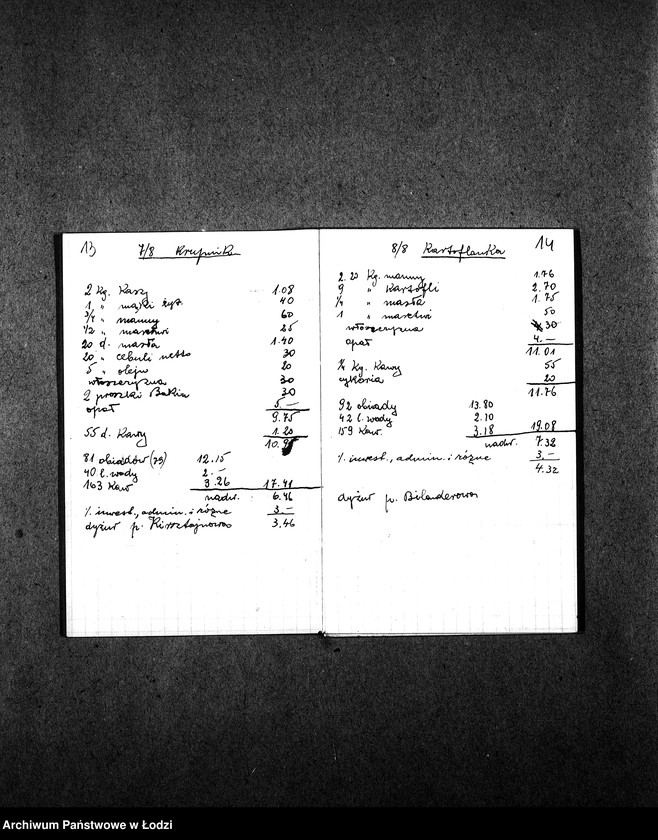 13
7/8 Krupnik
2 kg. Kaszy 1.08
1 " mąki żyt. 40
3/4 " manny 60
1/2 " marchwi 25
20 d. masła 1.40
20 " cebuli netto 30
5 " oleju 20
włoszczyzna 30
2 proszki Bakin 30
opał 5.–
9.75
55 d. Kawy 1.20
10.95
81 obiadów (79) 12.15
40 l. wody 2.–
163 Kaw 3.26 17.41
nadw. 6.46
% inwest., admin. i różne 3.–
dyżur p. Kirsztajnowa 3.46
14
8/8 Kartoflanka
2.20 kg. manny 1.76
9 " Kartofli 2.70
1/4 " masła 1.75
1 " marchwi 50
włoszczyzna 30
opał 4.–
11.01
1/4 kg. Kawy 55
cykoria 20
11.76
92 obiady 13.80
42 l. wody 2.10
159 Kaw. 3.18 19.08
nadw. 7.32
% inwest., admin. i różne 3.–
4.32
dyżur p. Bilanderowa
Archiwum Państwowe w Łodzi